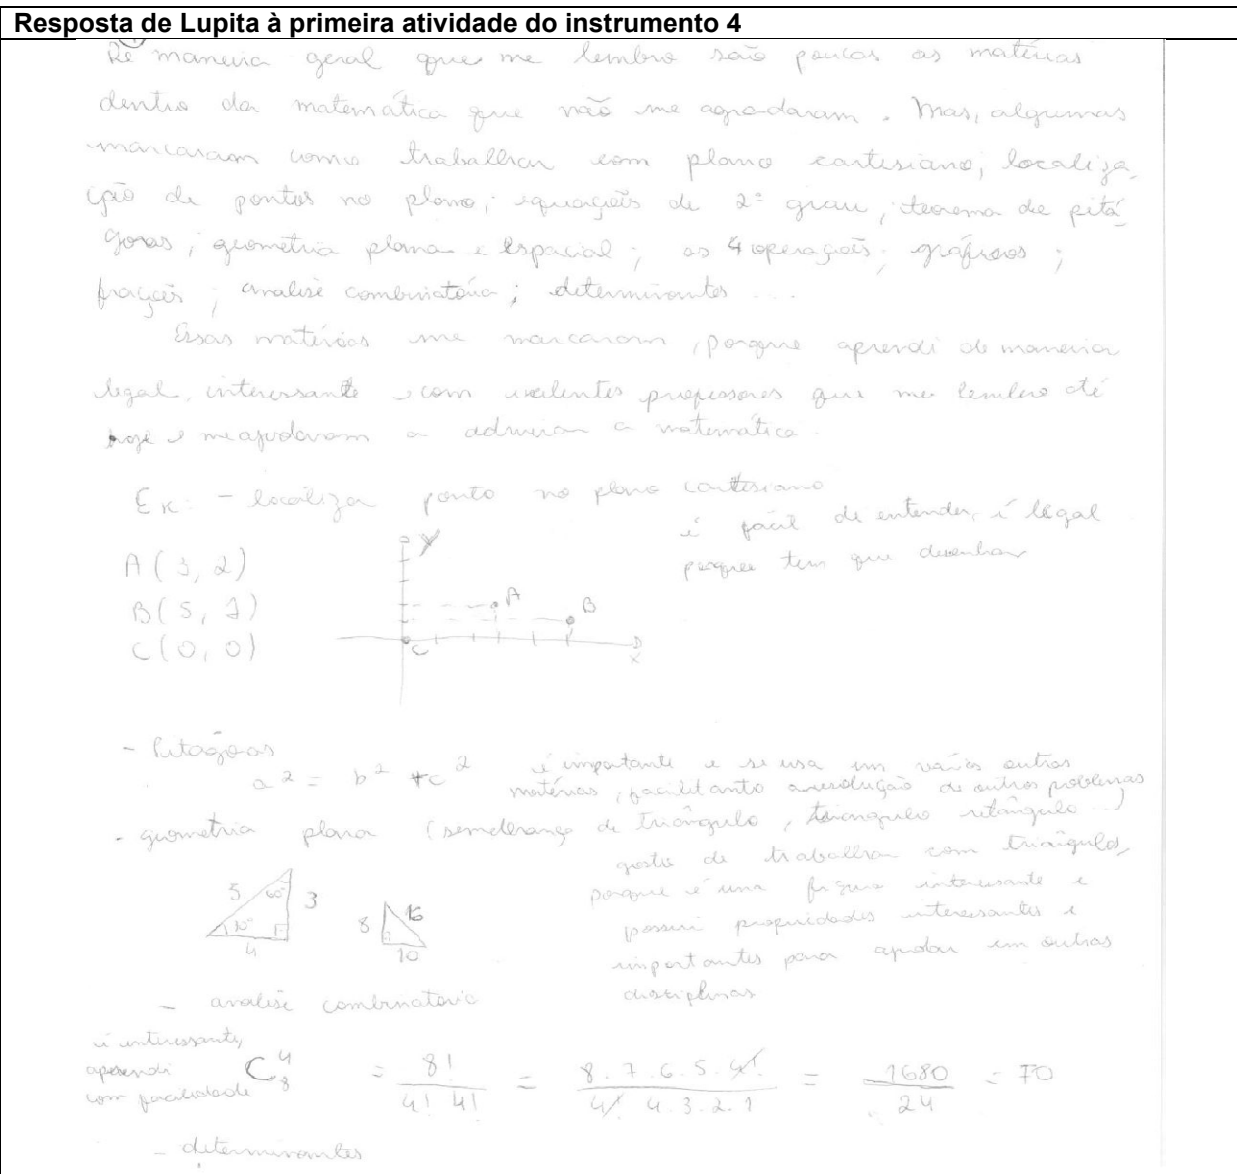 Resposta de Lupita à primeira atividade do instrumento 4
De maneira geral que me lembro são poucas as matérias
dentro da matemática que não me agradaram. Mas, algumas
marcaram como trabalhar com plano cartesiano; localiza-
ção de pontos no plano; equações de 2º grau; teorema de pitá
goras; geometria plana e espacial; as 4 operações; gráficos;
frações; analise combinatória; determinantes ...
Essas matérias me marcaram, porque aprendi de maneira
legal, interessante e com exelentes professores que me lembro até
hoje e me ajudavam a admirar a matemática.
Ex: - localizar ponto no plano cartesiano
é fácil de entender, é legal
porque tem que desenhar
A (3, 2)
B (5, 1)
C (0, 0)
y
A
B
C
x
- Pitagoras
a² = b² + c² é importante e se usa em varias outras
matérias, facilitanto a resolução de outros problemas
- geometria plana (semelhança de triângulo, triangulo retângulo ...)
gosto de trabalhar com triângulos,
porque é uma figura interessante e
possui propriedades interessantes e
importantes para ajudar em outras
disciplinas
5 60° 3
30°
4
8 16
10
- analise combinatoria
é interessante,
aprendi
com facilidade
C₈⁴ = 8! / 4! 4! = 8.7.6.5.4! / 4! 4.3.2.1 = 1680 / 24 = 70
- determinantes